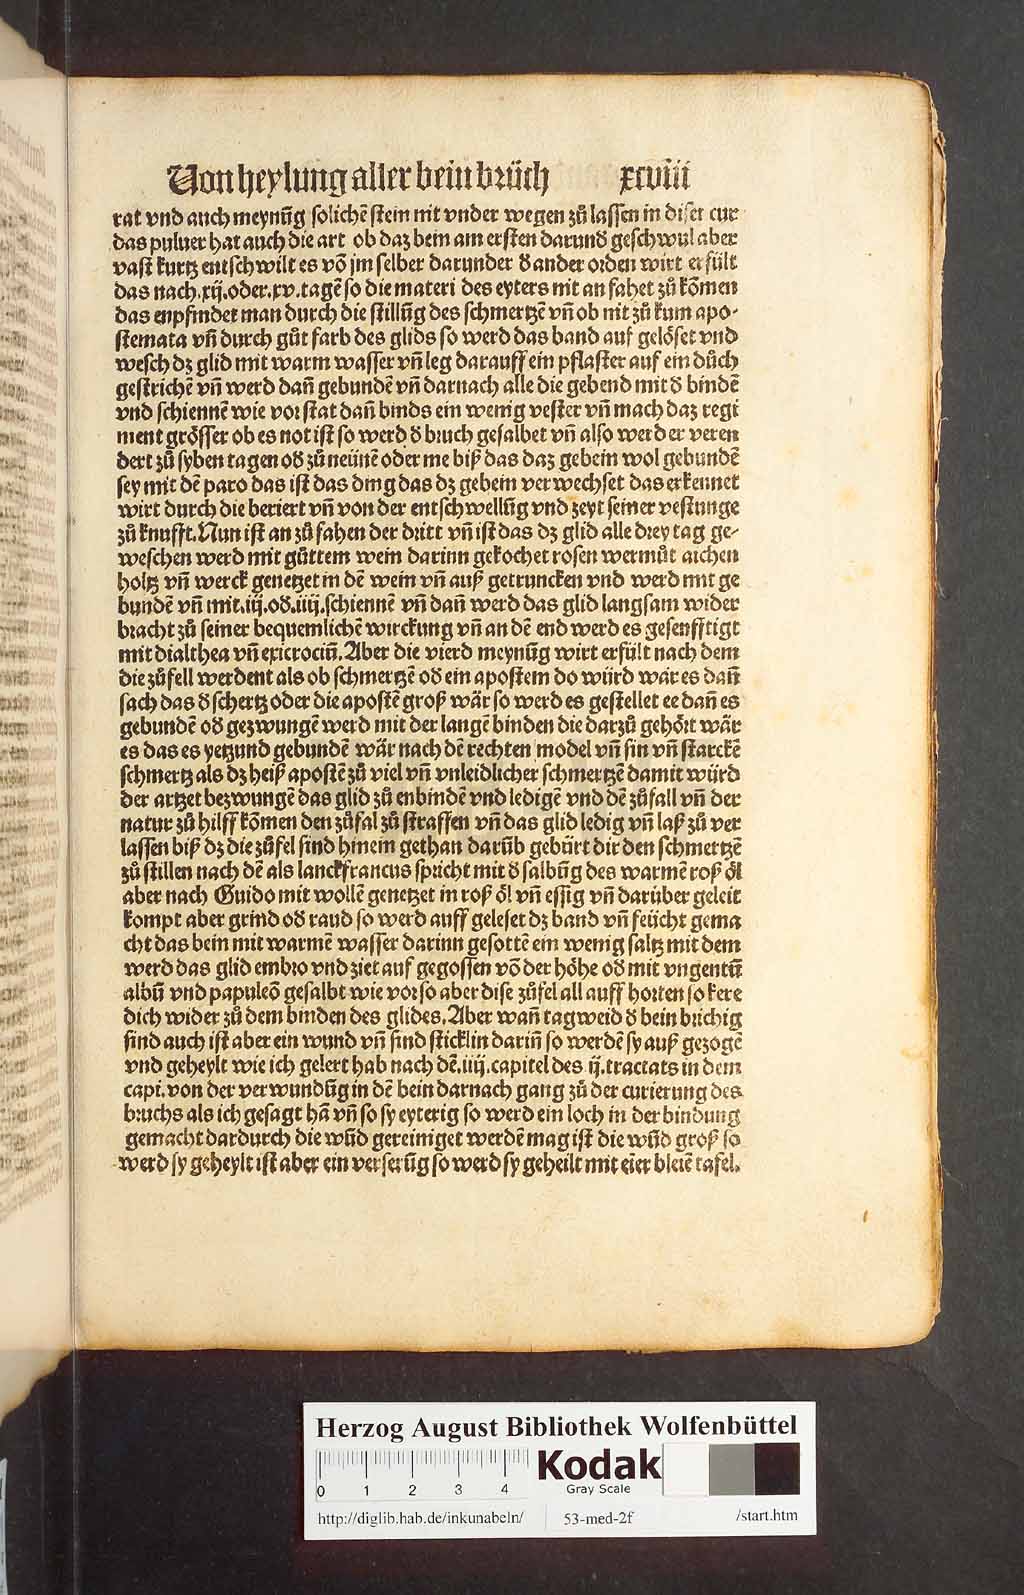 Von heylung aller bein brüch xcviii
rat vnd auch meynūg solichē stein nit vnder wegen zů lassen in diser cur
das puluer hat auch die art ob daz bein am ersten darunď geschwul aber
vast kurtz entschwilt es võ jm selber darunder ď ander orden wirt erfült
das nach.xij.oder.xv.tagē so die materi des eyters nit an fahet zů kõmen
das enpfindet man durch die stillūg des schmertzē vñ ob nit zů kum apo-
stemata vñ durch gůt farb des glids so werd das band auf gelöset vnd
wesch dz glid mit warm wasser vñ leg darauff ein pflaster auf ein důch
gestrichē vñ werd dañ gebundē vñ darnach alle die gebend mit ď bindē
vnd schiennē wie vor stat dañ binds ein wenig vester vñ mach daz regi
ment grösser ob es not ist so werd ď bruch gesalbet vñ also werd er veren
dert zů syben tagen oď zů neünē oder me biß das daz gebein wol gebundē
sey mit dē paro das ist das ding das dz gebein verwechset das erkennet
wirt durch die beriert vñ von der entschwellūg vnd zeyt seiner vestunge
zů knufft. Nun ist an zů fahen der dritt vñ ist das dz glid alle drey tag ge-
weschen werd mit gůttem wein darinn gekochet rosen wermůt aichen
holtz vñ werck genetzet in dē wein vñ auß getruncken vnd werd mit ge
bundē vñ mit.iij.oď.iiij.schiennē vñ dañ werd das glid langsam wider
bracht zů seiner bequemlichē wirckung vñ an dē end werd es gesenfftigt
mit dialthea vñ epicrociñ. Aber die vierd meynūg wirt erfült nach dem
die zůfell werdent als ob schmertzē oď ein apostem do würd wär es dañ
sach das ď schertz oder die apostē groß wär so werd es gestellet ee dañ es
gebundē oď gezwungē werd mit der langē binden die darzů gehört wär
es das es yetzund gebundē wär nach dē rechten model vñ sin vñ starckē
schmertz als dz heiß apostē zů viel vñ vnleidlicher schmertzē damit würd
der artzet bezwungē das glid zů enbindē vnd ledigē vnd dē zůfall vñ der
natur zů hilff kõmen den zůfal zů straffen vñ das glid ledig vñ laß zů ver
lassen biß dz die zůfel sind hinein gethan darūb gebürt dir den schmertzē
zů stillen nach dē als lanckfrancus spricht mit ď salbūg des warmē roß öl
aber nach Guido mit wollē genetzet in roß öl vñ essig vñ darüber geleit
kompt aber grind oď raud so werd auff geleset dz band vñ feücht gema
cht das bein mit warmē wasser darinn gesottē ein wenig saltz mit dem
werd das glid embro vnd ziet auf gegossen võ der höhe oď mit vngentū
albū vnd papuleõ gesalbt wie vor so aber dise zůfel all auff horten so kere
dich wider zů dem binden des glides. Aber wañ tagweid ď bein brichig
sind auch ist aber ein wund vñ sind sticklin dariñ so werdē sy auß gezogē
vnd geheylt wie ich gelert hab nach dē.iiij.capitel des ij.tractats in dem
capi.von der verwundūg in dē bein darnach gang zů der curierung des
bruchs als ich gesagt hā vñ so sy eyterig so werd ein loch in der bindung
gemacht dardurch die wūd gereiniget werdē mag ist die wūd groß so
werd sy geheylt ist aber ein verserūg so werd sy geheilt mit eīer bleiē tafel.
Herzog August Bibliothek Wolfenbüttel
0 1 2 3 4
Kodak
Gray Scale
http://diglib.hab.de/inkunabeln/ 53-med-2f /start.htm